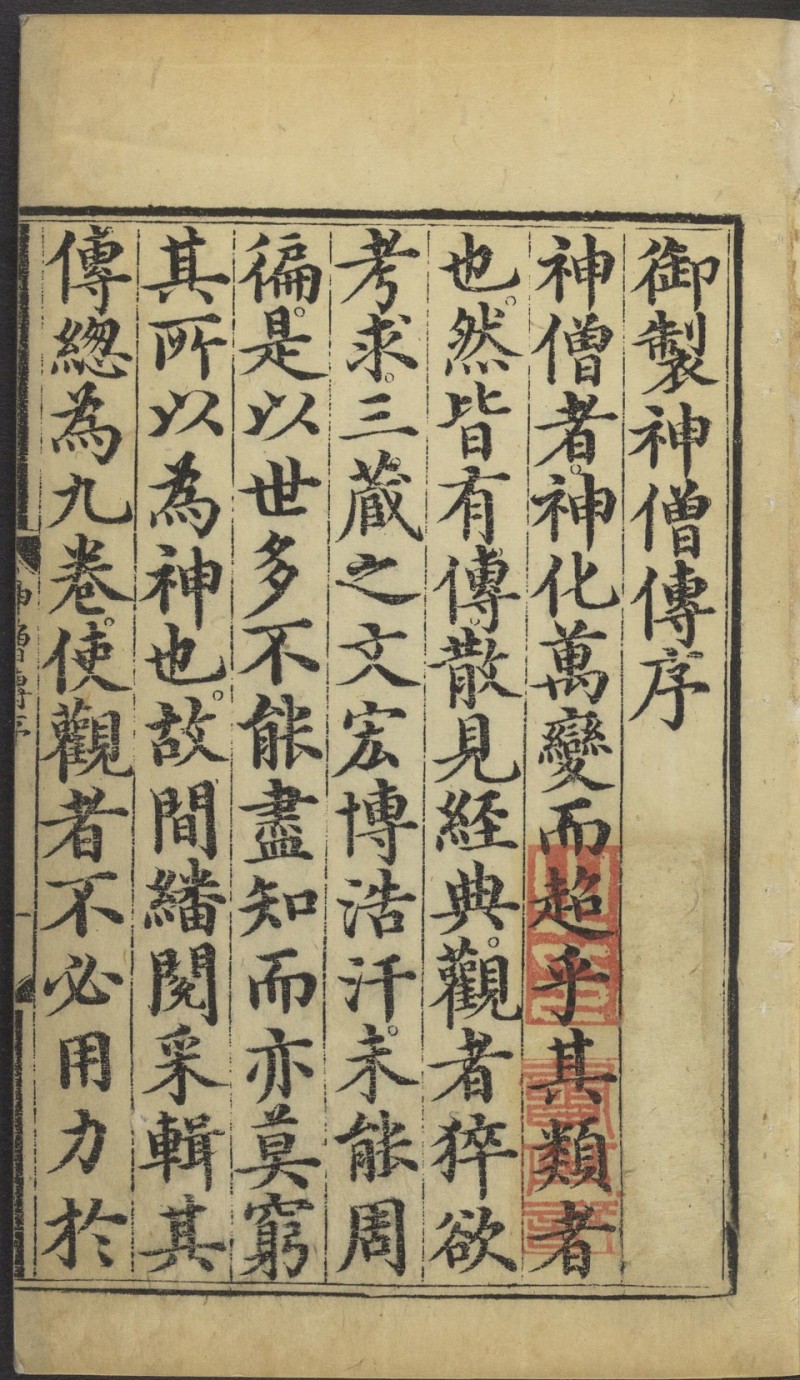 御製神僧傳序
神僧者。神化萬變而超乎其類者
也。然皆有傳。散見經典。觀者猝欲
考求。三蔵之文宏博浩汗。未能周
徧。是以世多不能盡知而亦莫窮
其所以為神也。故間繙閱采輯其
傳緫為九卷。使觀者不必用力於